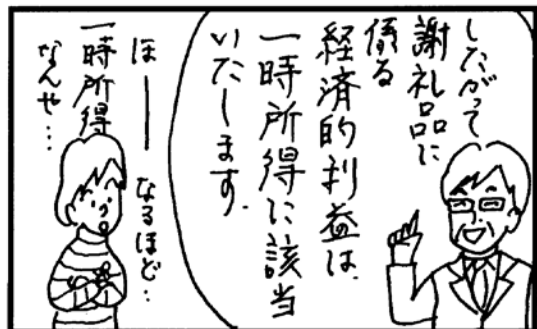 したがって
謝礼品に
係る
経済的利益は、
一時所得に該当
いたします。
ほーーなるほど…
一時所得
なんや…